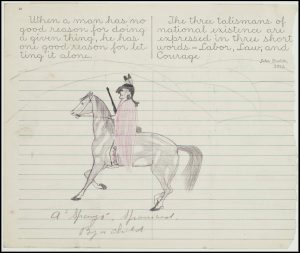 When a man has no
good reason for doing
a given thing, he has
one good reason for let
ting it alone.
The three talismans of
national existence are
expressed in three short
words — Labor, Law, and
Courage
John
A Spaniard
By a child